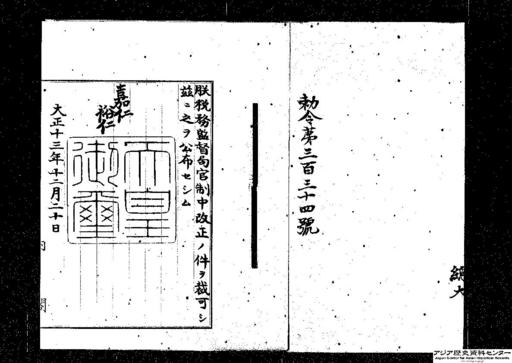 勅令第三百三十四號
朕税務監督局官制中改正ノ件ヲ裁可シ
玆ニ之ヲ公布セシム
嘉仁
裕仁
天皇御璽
大正十三年十二月二十日
内閣
アジア歴史資料センター
Japan Center for Asian Historical Records